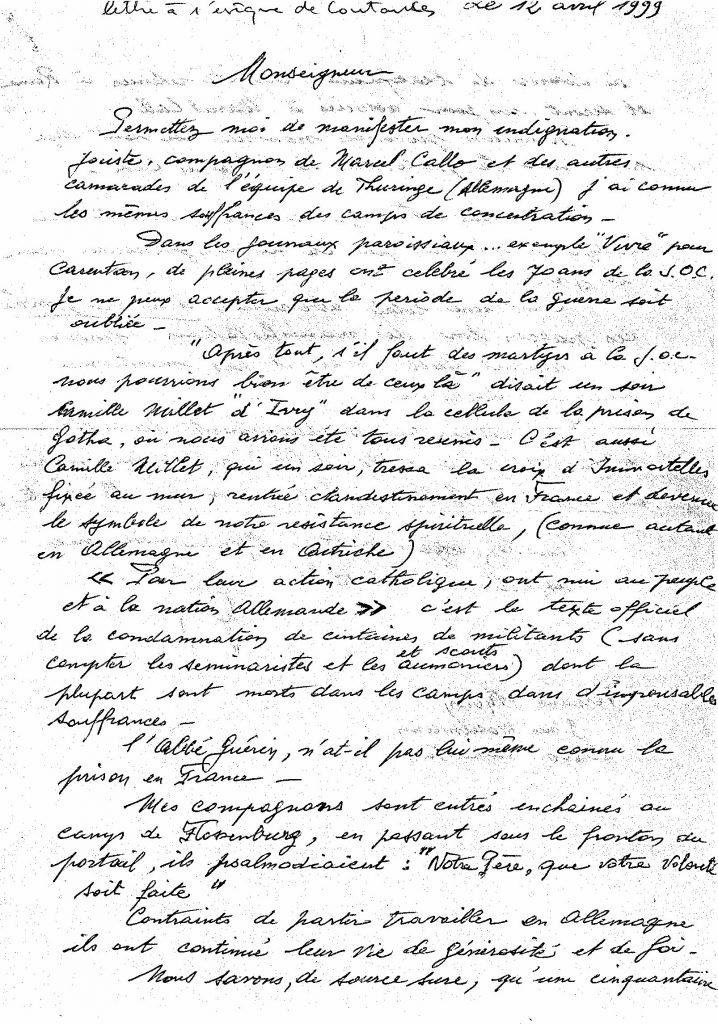 lettre à l'évêque de Coutances Le 12 avril 1999
Monseigneur
Permettez moi de manifester mon indignation.
Jociste, compagnon de Marcel Callo et des autres
camarades de l'équipe de Thuringe (Allemagne) J'ai connu
les mêmes souffrances des camps de concentration -
Dans les journaux paroissiaux... exemple "Vivre" pour
Carentan, de pleines pages ont celébré les 70 ans de la J.O.C.
Je ne peux accepter que la periode de la guerre soit
oubliée -
"Après tout, s'il faut des martyrs à la J.o.c-
nous pourrions bien être de ceux là" disait un soir
Camille Millet "d'Ivry" dans la cellule de la prison de
Gotha, où nous avions été tous reunis - C'est aussi
Camille Millet, qui un soir, tressa la croix d'Immortelles
fixée au mur, rentrée clandestinement en France et devenue
le symbole de notre resistance spirituelle, (connue autant
en Allemagne et en Autriche)
« Par leur action catholique, ont nui au peuple
et à la nation Allemande » c'est le texte officiel
de la condamnation de cintaines de militants (sans
compter les seminaristes et les aumoniers et scouts) dont la
plupart sont morts dans les camps dans d'impensables
souffrances -
l'Abbé Guérin, n'at-il pas lui même connu la
prison en France -
Mes compagnons sont entrés enchainés au
camps de Flossenburg, en passant sous le fronton du
portail, ils psalmodiaient : "Notre Père, que votre volonté
soit faite"
Contraints de partir travailler en Allemagne
ils ont continué leur vie de générosité et de foi -
Nous savons, de source sure, qu'une cinquantaine